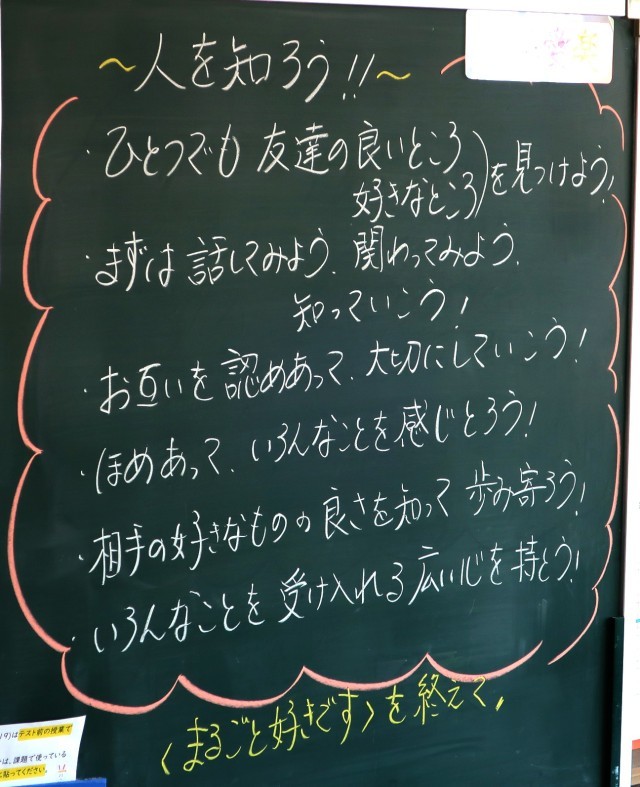 ~人を知ろう!!~
・ひとつでも 友達の良いところ
好きなところ)を見つけよう!
・まずは 話してみよう、関わってみよう、
知っていこう!
・お互いを認めあって、大切にしていこう!
・ほめあって、いろんなことを感じとろう!
・相手の好きなものの良さを知って 歩み寄ろう!
・いろんなことを 受け入れる広い心を持とう!
〈まるごと好きです〉を終えて、
はテスト前の授業で
は、課題で使っている
に貼ってください。